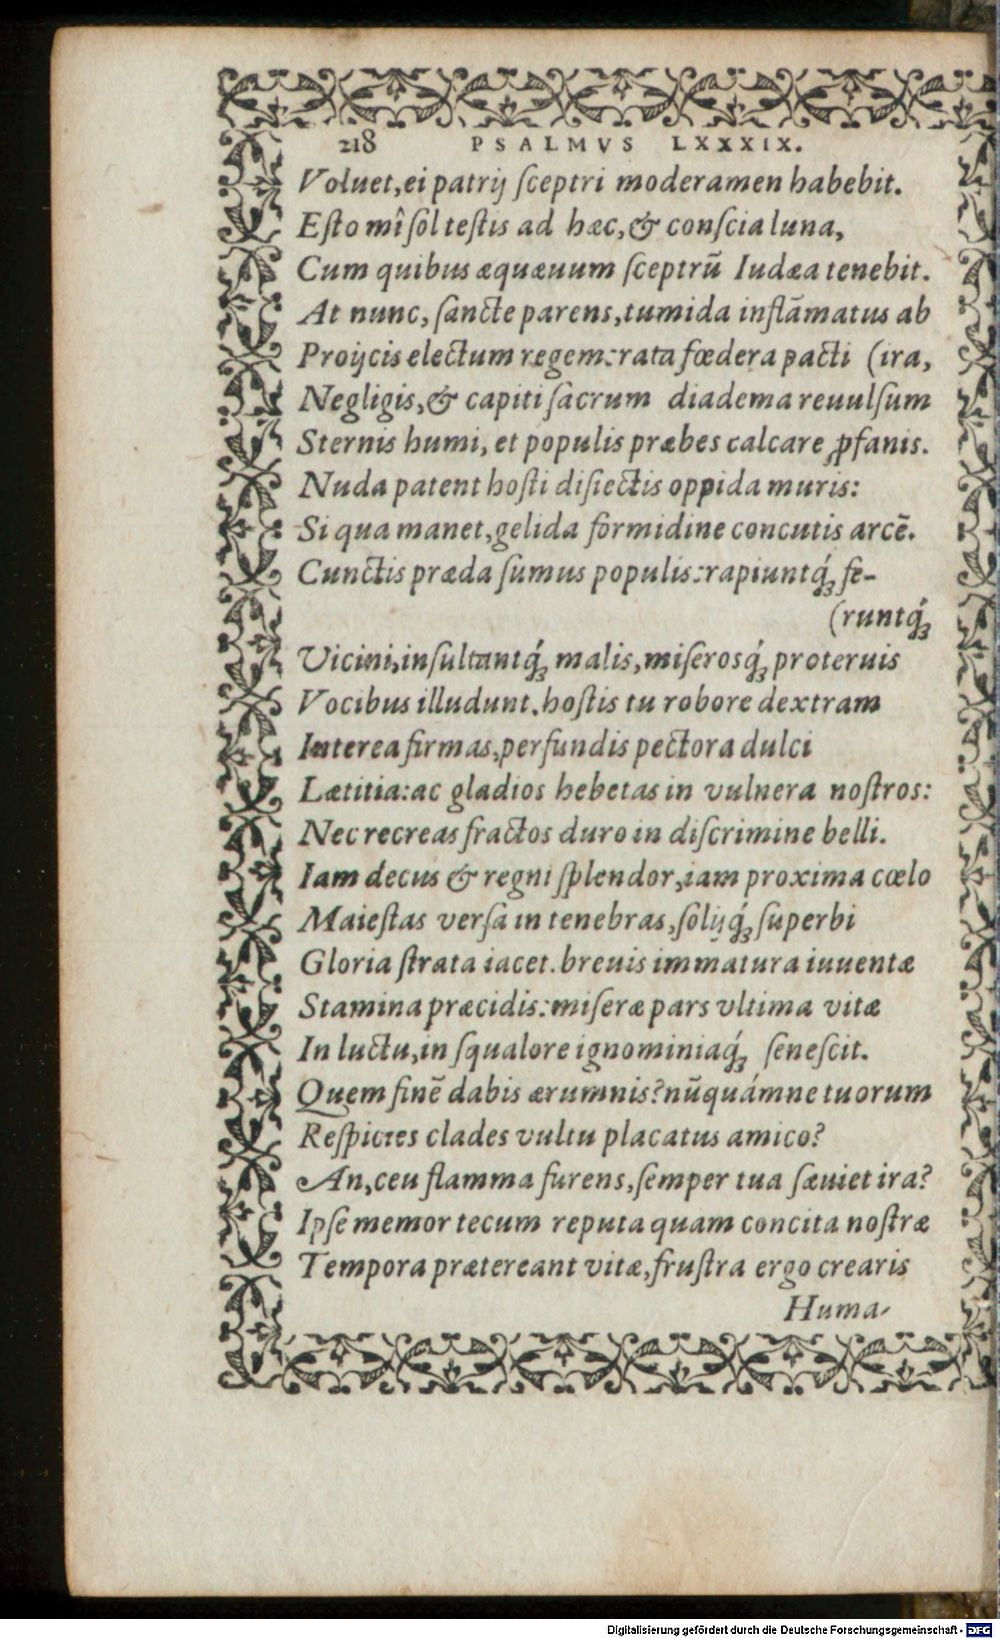 218 PSALMVS LXXXIX.
Voluet, ei patrij ſceptri moderamen habebit.
Eſto mî ſol teſtis ad hæc, & conſcia luna,
Cum quibus æquæuum ſceptrū Iudæa tenebit.
At nunc, ſancte parens, tumida inflāmatus ab
Proijcis electum regem: rata fœdera pacti (ira,
Negligis, & capiti ſacrum diadema reuulſum
Sternis humi, et populis præbes calcare ꝓfanis.
Nuda patent hoſti diſiectis oppida muris:
Si qua manet, gelida formidine concutis arcē.
Cunctis præda ſumus populis: rapiuntq́ꝫ fe-
(runtq́ꝫ
Vicini, inſultantq́ꝫ malis, miſerosq́ꝫ proteruis
Vocibus illudunt. hoſtis tu robore dextram
Interea firmas, perfundis pectora dulci
Lætitia: ac gladios hebetas in vulnera noſtros:
Nec recreas fractos duro in diſcrimine belli.
Iam decus & regni ſplendor, iam proxima cœlo
Maieſtas verſa in tenebras, ſolijq́ꝫ ſuperbi
Gloria ſtrata iacet. breuis immatura iuuentæ
Stamina præcidis: miſeræ pars vltima vitæ
In luctu, in ſqualore ignominiaq́ꝫ ſeneſcit.
Quem finē dabis ærumnis? nūquámne tuorum
Reſpicies clades vultu placatus amico?
An, ceu flamma furens, ſemper tua ſæuiet ira?
Ipſe memor tecum reputa quam concita noſtræ
Tempora prætereant vitæ, fruſtra ergo crearis
Huma-
Digitalisierung gefördert durch die Deutsche Forschungsgemeinschaft - DFG